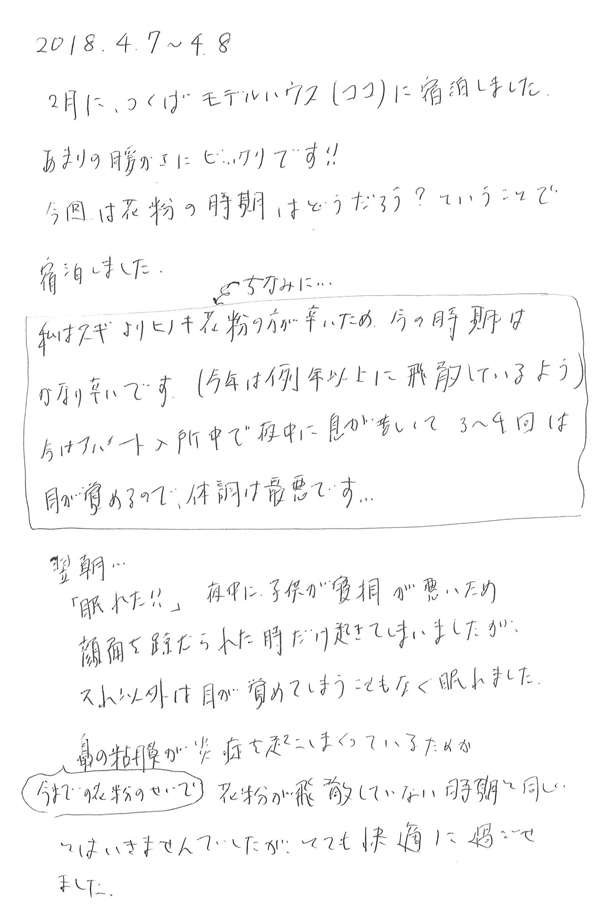 2018.4.7～4.8
2月に、つくばモデルハウス(ココ)に宿泊しました.
あまりの暖かさにビックリです!!
今回は花粉の時期はどうだろう?ということで
宿泊しました.
ちなみに…
私はスギよりヒノキ花粉の方が辛いため.今の時期は
かなり辛いです.(今年は例年以上に飛散しているよう)
今はアパート入所中で夜中に息が苦しくて3～4回は
目が覚めるので、体調は最悪です…
翌朝…
「眠れた!!」夜中に子供が寝相が悪いため
顔面を蹴られた時だけ起きてしまいましたが、
それ以外は目が覚めてしまうこともなく眠れました.
鼻の粘膜が炎症を起こしまくっているためか
今までの花粉のせいで 花粉が飛散していない時期と同じ
とはいきませんでしたが、とても快適に過ごせ
ました.